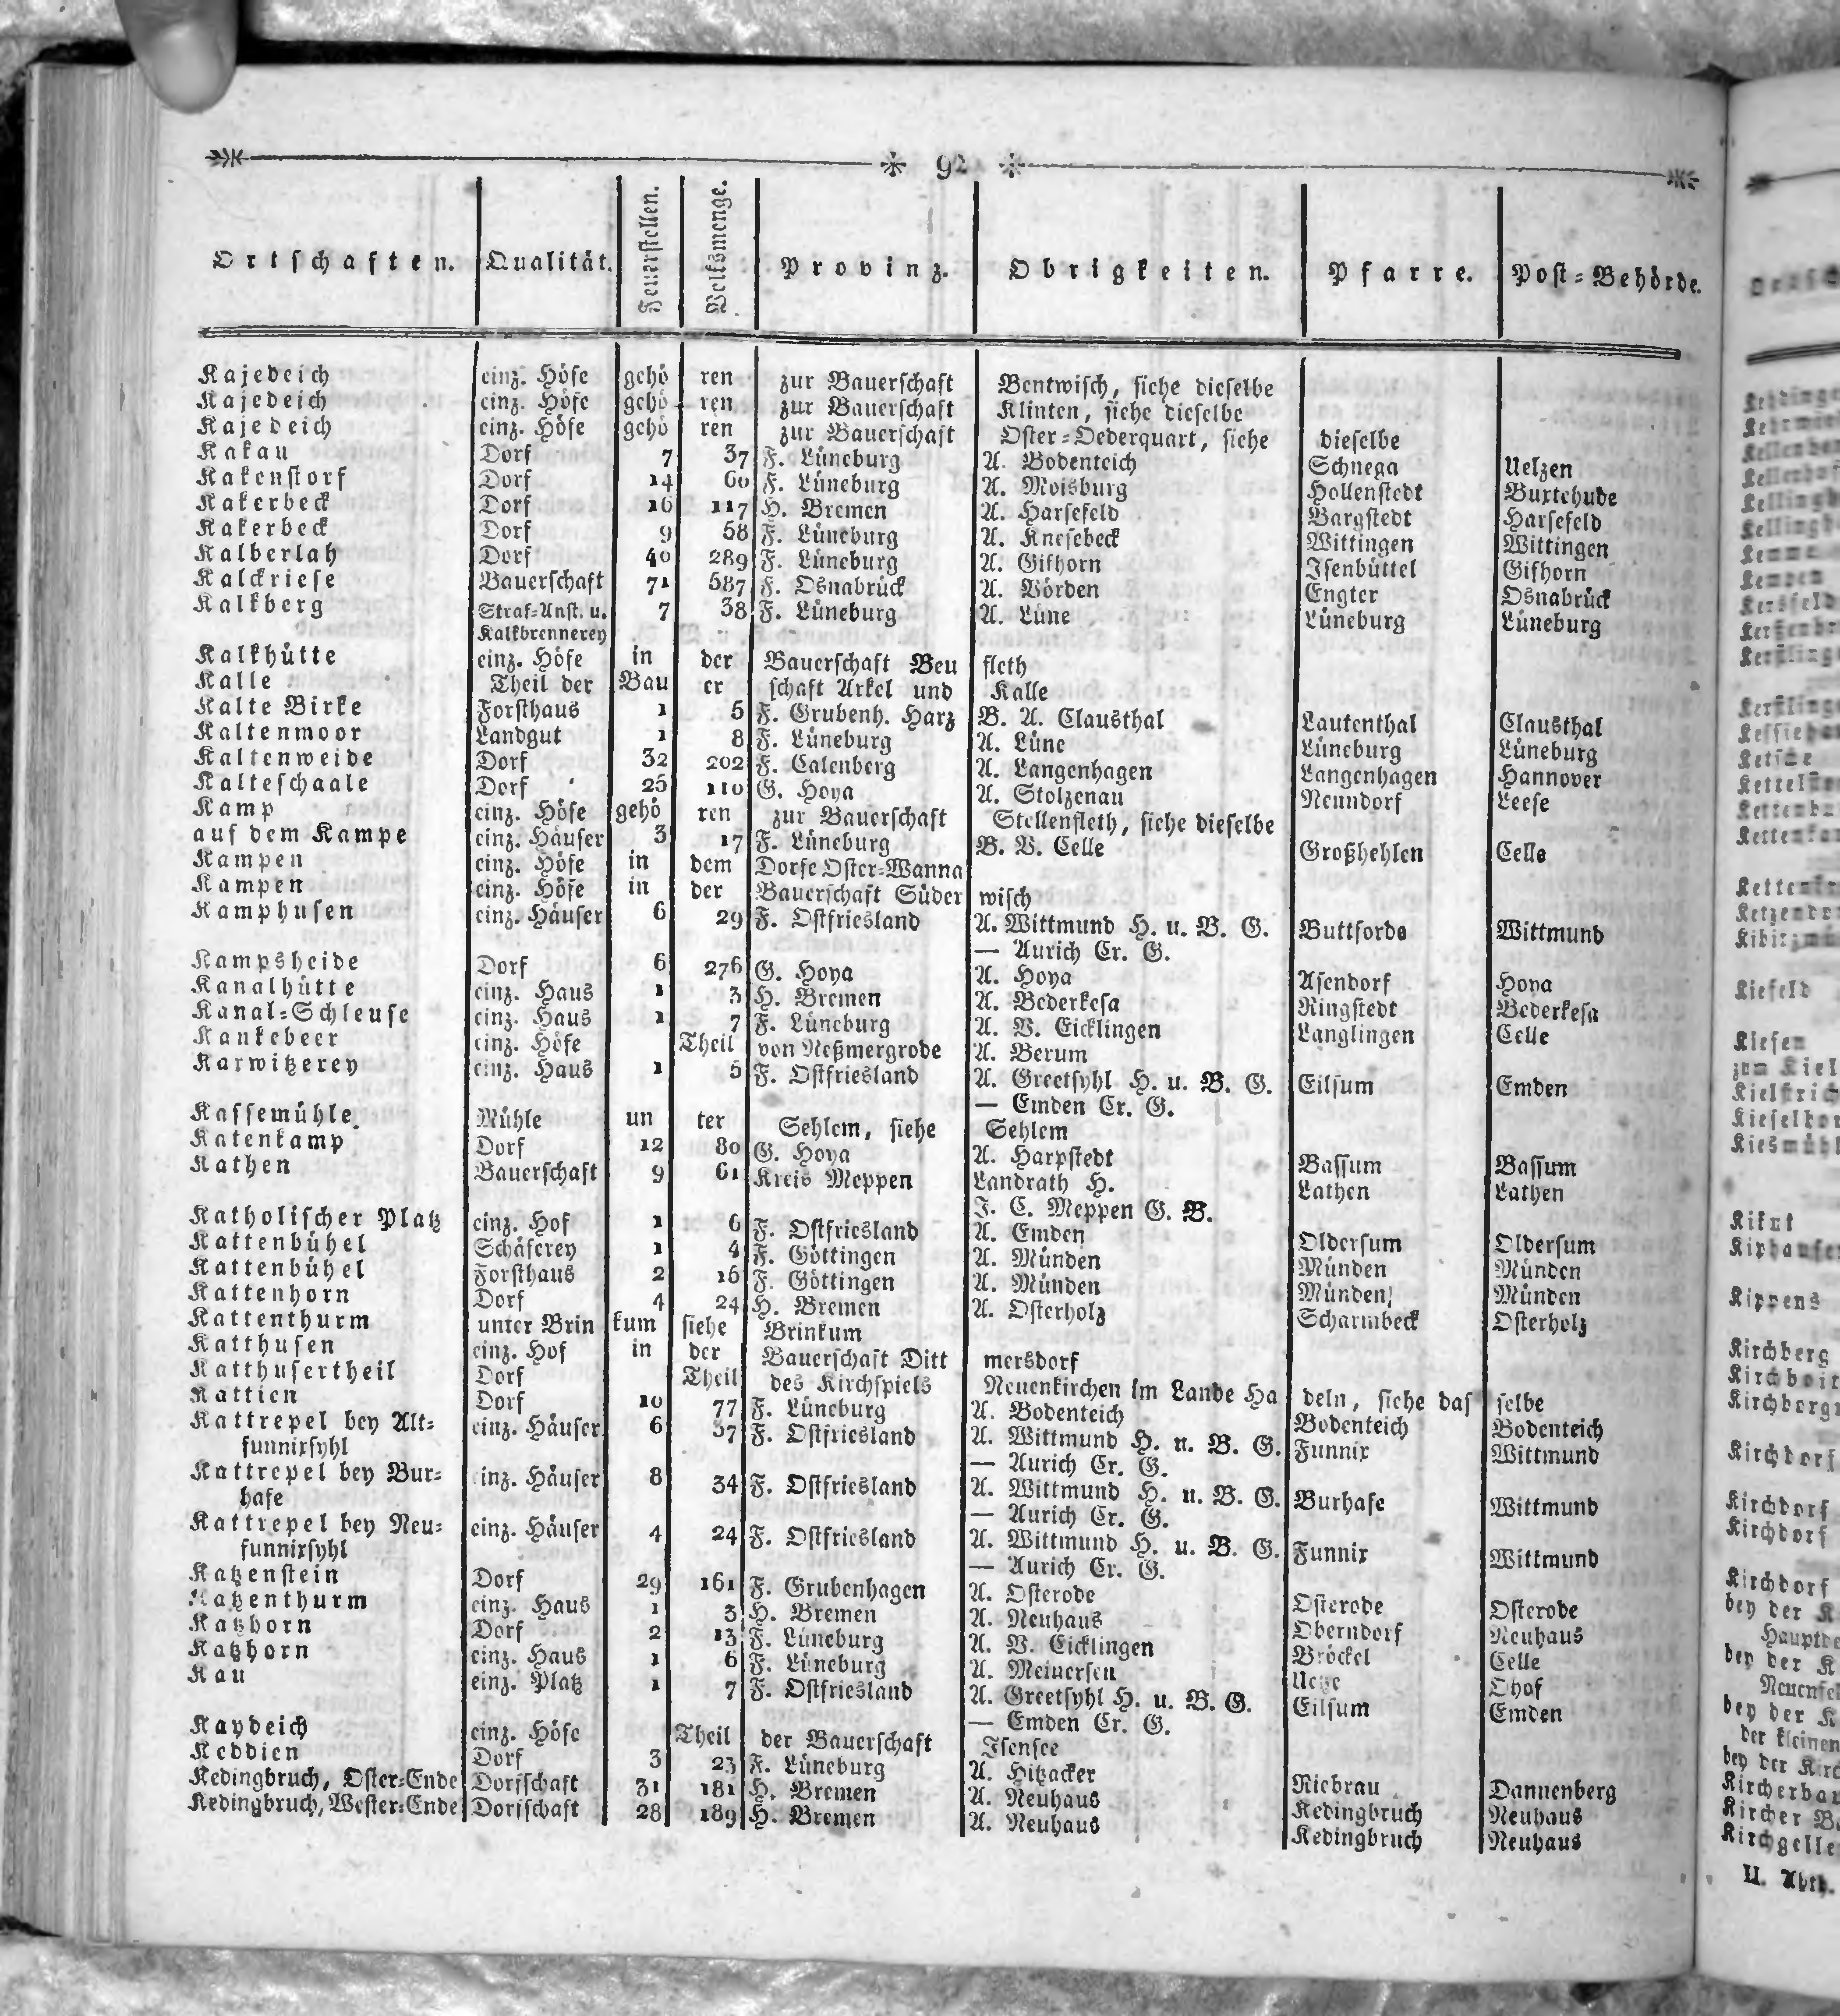 92
Ortschaften. Qualität. Feuerstellen. Volksmenge. Provinz. Obrigkeiten. Pfarre. Post=Behörde.
Kajedeich einz. Höfe gehö ren zur Bauerschaft Bentwisch, siehe dieselbe
Kajedeich einz. Höfe gehö ren zur Bauerschaft Klinten, siehe dieselbe
Kajedeich einz. Höfe gehö ren zur Bauerschaft Oster=Oederquart, siehe dieselbe
Kakau Dorf 7 37 F. Lüneburg A. Bodenteich Schnega Uelzen
Kakenstorf Dorf 14 60 F. Lüneburg A. Moisburg Hollenstedt Buxtehude
Kakerbeck Dorf 16 117 H. Bremen A. Harsefeld Bargstedt Harsefeld
Kakerbeck Dorf 9 58 F. Lüneburg A. Knesebeck Wittingen Wittingen
Kalberlah Dorf 40 289 F. Lüneburg A. Gifhorn Isenbüttel Gifhorn
Kalckriese Bauerschaft 71 587 F. Osnabrück A. Vörden Engter Osnabrück
Kalkberg Straf=Anst. u. 7 38 F. Lüneburg A. Lüne Lüneburg Lüneburg
Kalkbrennerey
Kalkhütte einz. Höfe in der Bauerschaft Beu fleth
Kalle Theil der Bau er schaft Arkel und Kalle
Kalte Birke Forsthaus 1 5 F. Grubenh. Harz B. A. Clausthal Lautenthal Clausthal
Kaltenmoor Landgut 1 8 F. Lüneburg A. Lüne Lüneburg Lüneburg
Kaltenweide Dorf 32 202 F. Calenberg A. Langenhagen Langenhagen Hannover
Kalteschaale Dorf 25 110 G. Hoya A. Stolzenau Nenndorf Leese
Kamp einz. Höfe gehö ren zur Bauerschaft Stellenfleth, siehe dieselbe
auf dem Kampe einz. Häuser 3 17 F. Lüneburg B. V. Celle Großhehlen Celle
Kampen einz. Höfe in dem Dorfe Oster=Wanna
Kampen einz. Höfe in der Bauerschaft Süder wisch
Kamphusen einz. Häuser 6 29 F. Ostfriesland A. Wittmund H. u. B. G. Buttforde Wittmund
— Aurich Cr. G.
Kampsheide Dorf 6 276 G. Hoya A. Hoya Asendorf Hoya
Kanalhütte einz. Haus 1 3 H. Bremen A. Bederkesa Ringstedt Bederkesa
Kanal=Schleuse einz. Haus 1 7 F. Lüneburg A. V. Eicklingen Langlingen Celle
Kankebeer einz. Höfe Theil von Neßmergrode A. Berum
Karwitzerey einz. Haus 1 5 F. Ostfriesland A. Greetsyhl H. u. B. G. Eilsum Emden
— Emden Cr. G.
Kassemühle Mühle un ter Sehlem, siehe Sehlem
Katenkamp Dorf 12 80 G. Hoya A. Harpstedt Bassum Bassum
Kathen Bauerschaft 9 61 Kreis Meppen Landrath H. Lathen Lathen
J. C. Meppen G. B.
Katholischer Platz einz. Hof 1 6 F. Ostfriesland A. Emden Oldersum Oldersum
Kattenbühel Schäferey 1 4 F. Göttingen A. Münden Münden Münden
Kattenbühel Forsthaus 2 16 F. Göttingen A. Münden Münden Münden
Kattenhorn Dorf 4 24 H. Bremen A. Osterholz Scharmbeck Osterholz
Kattenthurm unter Brin kum siehe Brinkum
Katthusen einz. Hof in der Bauerschaft Ditt mersdorf
Katthusertheil Dorf Theil des Kirchspiels Neuenkirchen im Lande Ha deln, siehe das selbe
Kattien Dorf 10 77 F. Lüneburg A. Bodenteich Bodenteich Bodenteich
Kattrepel bey Alt= einz. Häuser 6 37 F. Ostfriesland A. Wittmund H. u. B. G. Funnix Wittmund
funnixsyhl — Aurich Cr. G.
Kattrepel bey Bur= einz. Häuser 8 34 F. Ostfriesland A. Wittmund H. u. B. G. Burhafe Wittmund
hafe — Aurich Cr. G.
Kattrepel bey Neu= einz. Häuser 4 24 F. Ostfriesland A. Wittmund H. u. B. G. Funnix Wittmund
funnixsyhl — Aurich Cr. G.
Katzenstein Dorf 29 161 F. Grubenhagen A. Osterode Osterode Osterode
Katzenthurm einz. Haus 1 3 H. Bremen A. Neuhaus Oberndorf Neuhaus
Katzhorn Dorf 2 13 F. Lüneburg A. V. Eicklingen Bröckel Celle
Katzhorn einz. Haus 1 6 F. Lüneburg A. Meinersen Uetze Ohof
Kau einz. Platz 1 7 F. Ostfriesland A. Greetsyhl H. u. B. G. Eilsum Emden
— Emden Cr. G.
Kaydeich einz. Höfe Theil der Bauerschaft Isensee
Keddien Dorf 3 23 F. Lüneburg A. Hitzacker Riebrau Dannenberg
Kedingbruch, Oster=Ende Dorfschaft 31 181 H. Bremen A. Neuhaus Kedingbruch Neuhaus
Kedingbruch, Wester=Ende Dorfschaft 28 189 H. Bremen A. Neuhaus Kedingbruch Neuhaus
Kiefeld
Kiefen
Kirchberg
Kirchdorf
Kirchdorf
Kirchdorf
Kirchdorf
II. Abth.